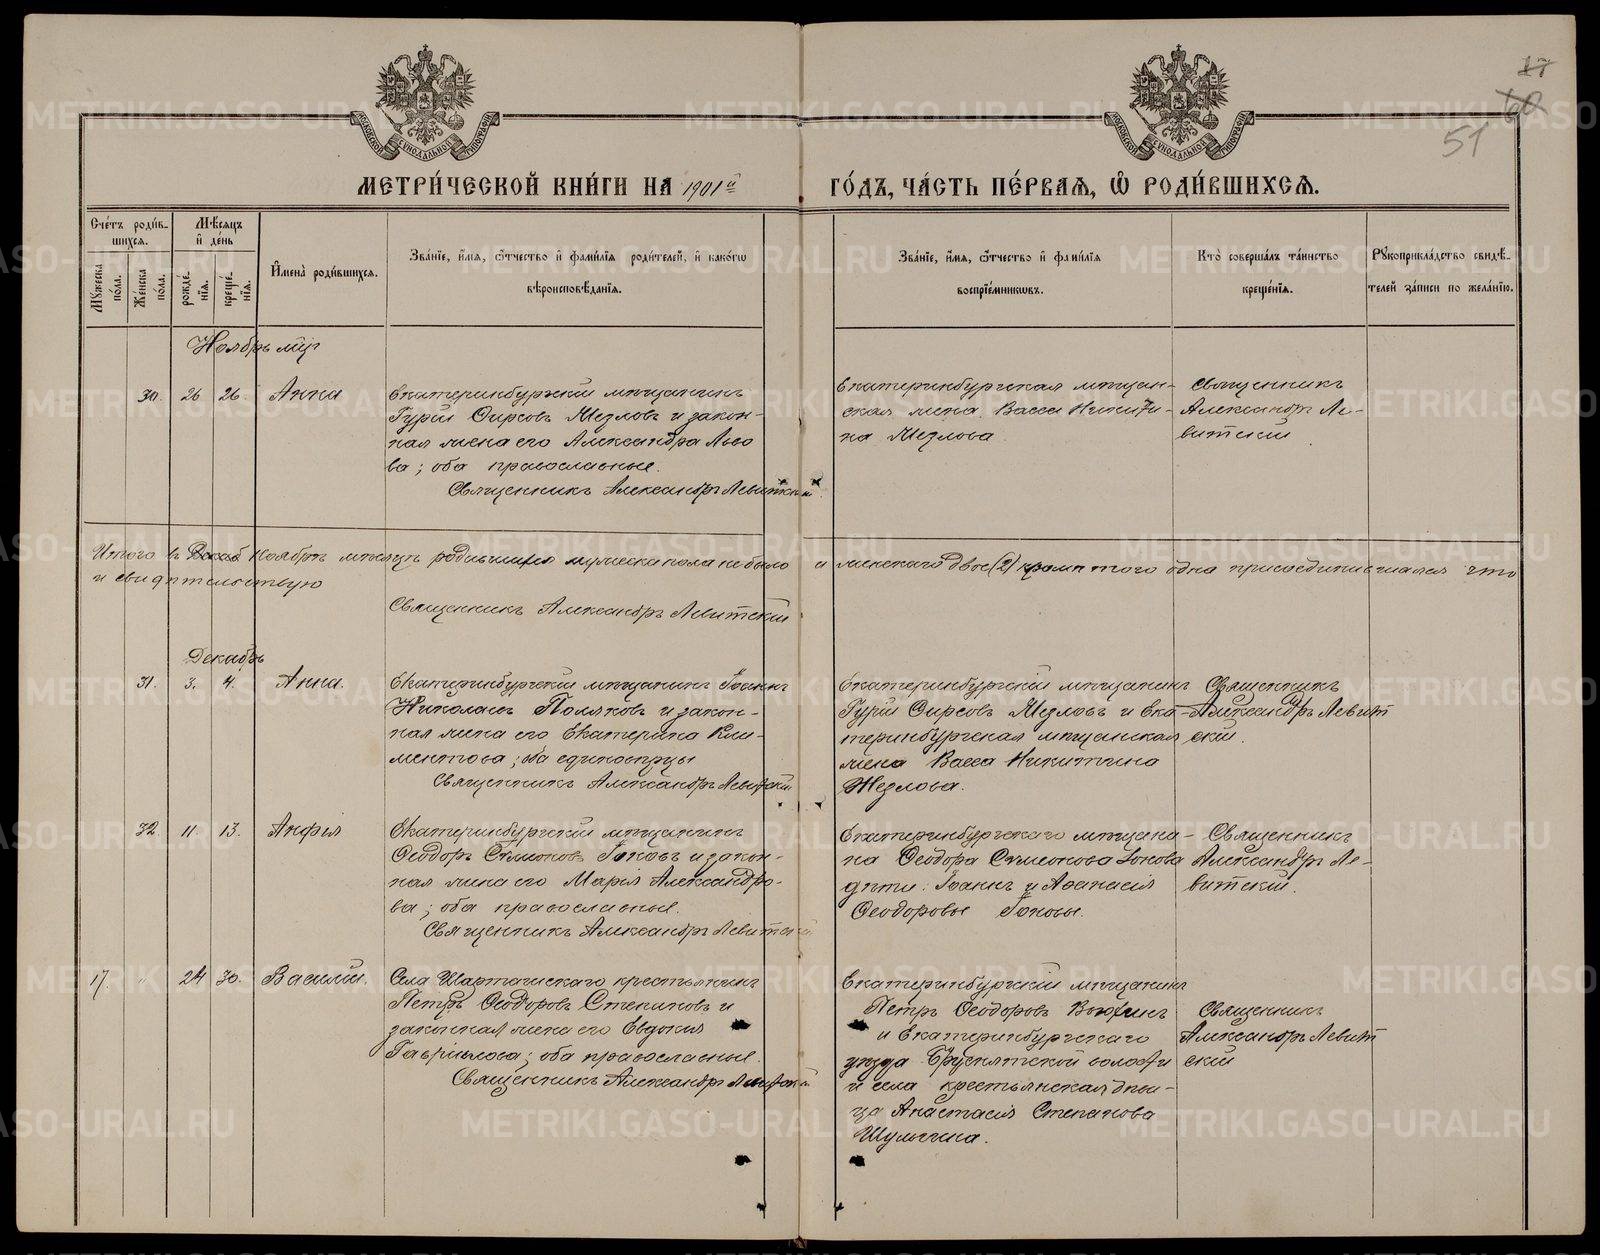 17
60
51
МЕТРИ́ЧЕСКОЙ КНИ́ГИ НА 1901й ГО́ДЪ, ЧА́СТЬ ПЕ́РВАѦ, Ѿ РОДИ́ВШИХСѦ.
Сче́тъ роди́в-
шихсѧ.
Мѣ́сѧцъ
и де́нь
Мꙋжеска по́ла.
Же́нска по́ла.
рожде́-
нїѧ.
креще́-
нїѧ.
И҆мена̀ роди́вшихсѧ.
Зва́нїе, и҆́мѧ, ѻ҆́тчество и҆ фами́лїѧ роди́телей, и҆ како́гѡ
вѣроисповѣ́данїѧ.
Зва́нїе, и҆́мѧ, ѻ҆́тчество и҆ фами́лїѧ
воспрїе́мникѡвъ.
Кто̀ соверша́лъ та́инство
креще́нїѧ.
Рꙋкоприкла́дство свидѣ́-
телей за́писи по жела́нїю.
Ноябрь мцъ
30. 26 26. Анна
Екатеринбургскій мѣщанинъ
Гурій Фирсовъ Жезловъ и закон-
ная жена его Александра Льво
ва; оба православные.
Священникъ Александръ Левитскій.
Екатеринбургская мѣщан-
ская жена Васса Никити-
на Жезлова.
Священникъ
Александръ Ле-
витскій
Итого въ Ноябрѣ мѣсяцѣ родившихся мужеска пола не было и женскаго двое (2) кромѣ того одна присоединившаяся что
и свидѣтельствую
Священникъ Александръ Левитскій
Декабрь
31. 3. 4. Анна.
Екатеринбургскій мѣщанинъ Іоаннъ
Николаевъ Поляковъ и закон-
ная жена его Екатерина Кли-
ментова; оба единовѣрцы
Священникъ Александръ Левитскій
Екатеринбургскій мѣщанинъ
Гурій Фирсовъ Жезловъ и Ека-
теринбургская мѣщанская
жена Васса Никитина
Жезлова.
Священникъ
Александръ Левит
скій.
32. 11. 13. Анфія
Екатеринбургскій мѣщанинъ
Ѳеодоръ Симеоновъ Іоновъ и закон-
ная жена его Марія Александро-
ва; оба православные.
Священникъ Александръ Левитскій
Екатеринбургскаго мѣщани-
на Ѳеодора Симеонова Іонова
дѣти: Іоаннъ и Аѳанасія
Ѳеодоровы Іоновы.
Священникъ
Александръ Ле-
витскій.
17. " 24 30. Василій.
Села Шарташскаго крестьянинъ
Петръ Ѳеодоровъ Степановъ и
законная жена его Евдокія
Гавріилова; оба православные.
Священникъ Александръ Левитскій
Екатеринбургскій мѣщанинъ
Петръ Ѳеодоровъ
и Екатеринбургскаго
уѣзда Брусянтской волости
и села крестьянская дѣви-
ца Анастасія Степанова
Шульгина.
Священникъ
Александръ Левит
скій